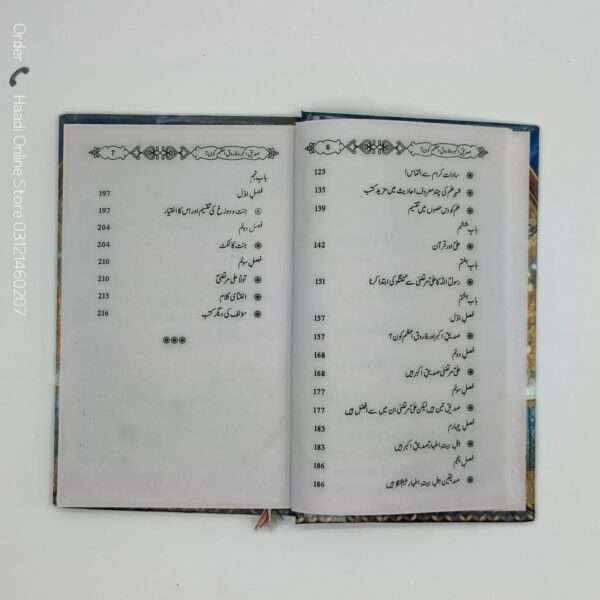 Order Haadi Online Store 03121460207
6 صدیق اکبر و فاروق اعظم کون؟
سادات کرام سے التماس! 125
شہرِ علم کی چند معروف احادیث میں مزید کتب 135
علم کو دس حصوں میں تقسیم 139
باب ششم
علیؑ اور قرآن 142
باب ہفتم
رسول اللہ کا علی مرتضیٰ سے گفتگو کی ابتدا کرنا 151
باب ہشتم
فصل اوّل 157
صدیق اکبر اور فاروق اعظم کون؟ 157
فصل دوئم 168
علی مرتضیٰ صدیق اکبر ہیں 168
فصل سوئم 177
صدیق تین ہیں لیکن علی مرتضیٰ ان میں سے افضل ہیں 177
فصل چہارم 183
اہلِ بیت اطہار صدیق اکبر ہیں 183
فصل پنجم 186
صدیقین اہلِ بیت اطہار ہیں 186
7 صدیق اکبر و فاروق اعظم کون؟
باب نہم
فصل اوّل 197
جنت و دوزخ کی تقسیم اور اس کا اختیار 197
فصل دوئم 204
جنت کا ٹکٹ 204
فصل سوئم 210
تولّا علی مرتضیٰ 210
اختتامی کلام 213
مؤلف کی دیگر کتب 216